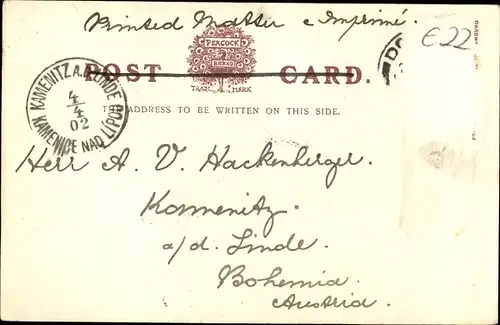 Printed Matter e Imprimé.
PEACOCK
BRAND
TRADE MARK
POST CARD.
THE ADDRESS TO BE WRITTEN ON THIS SIDE.
KAMENITZ A.D. LINDE
4/4
02
KAMENICE NAD LIPOU
€22
Herr A. V. Hackenberger.
Kommenitz.
a/d. Linde.
Bohemia.
Austria.